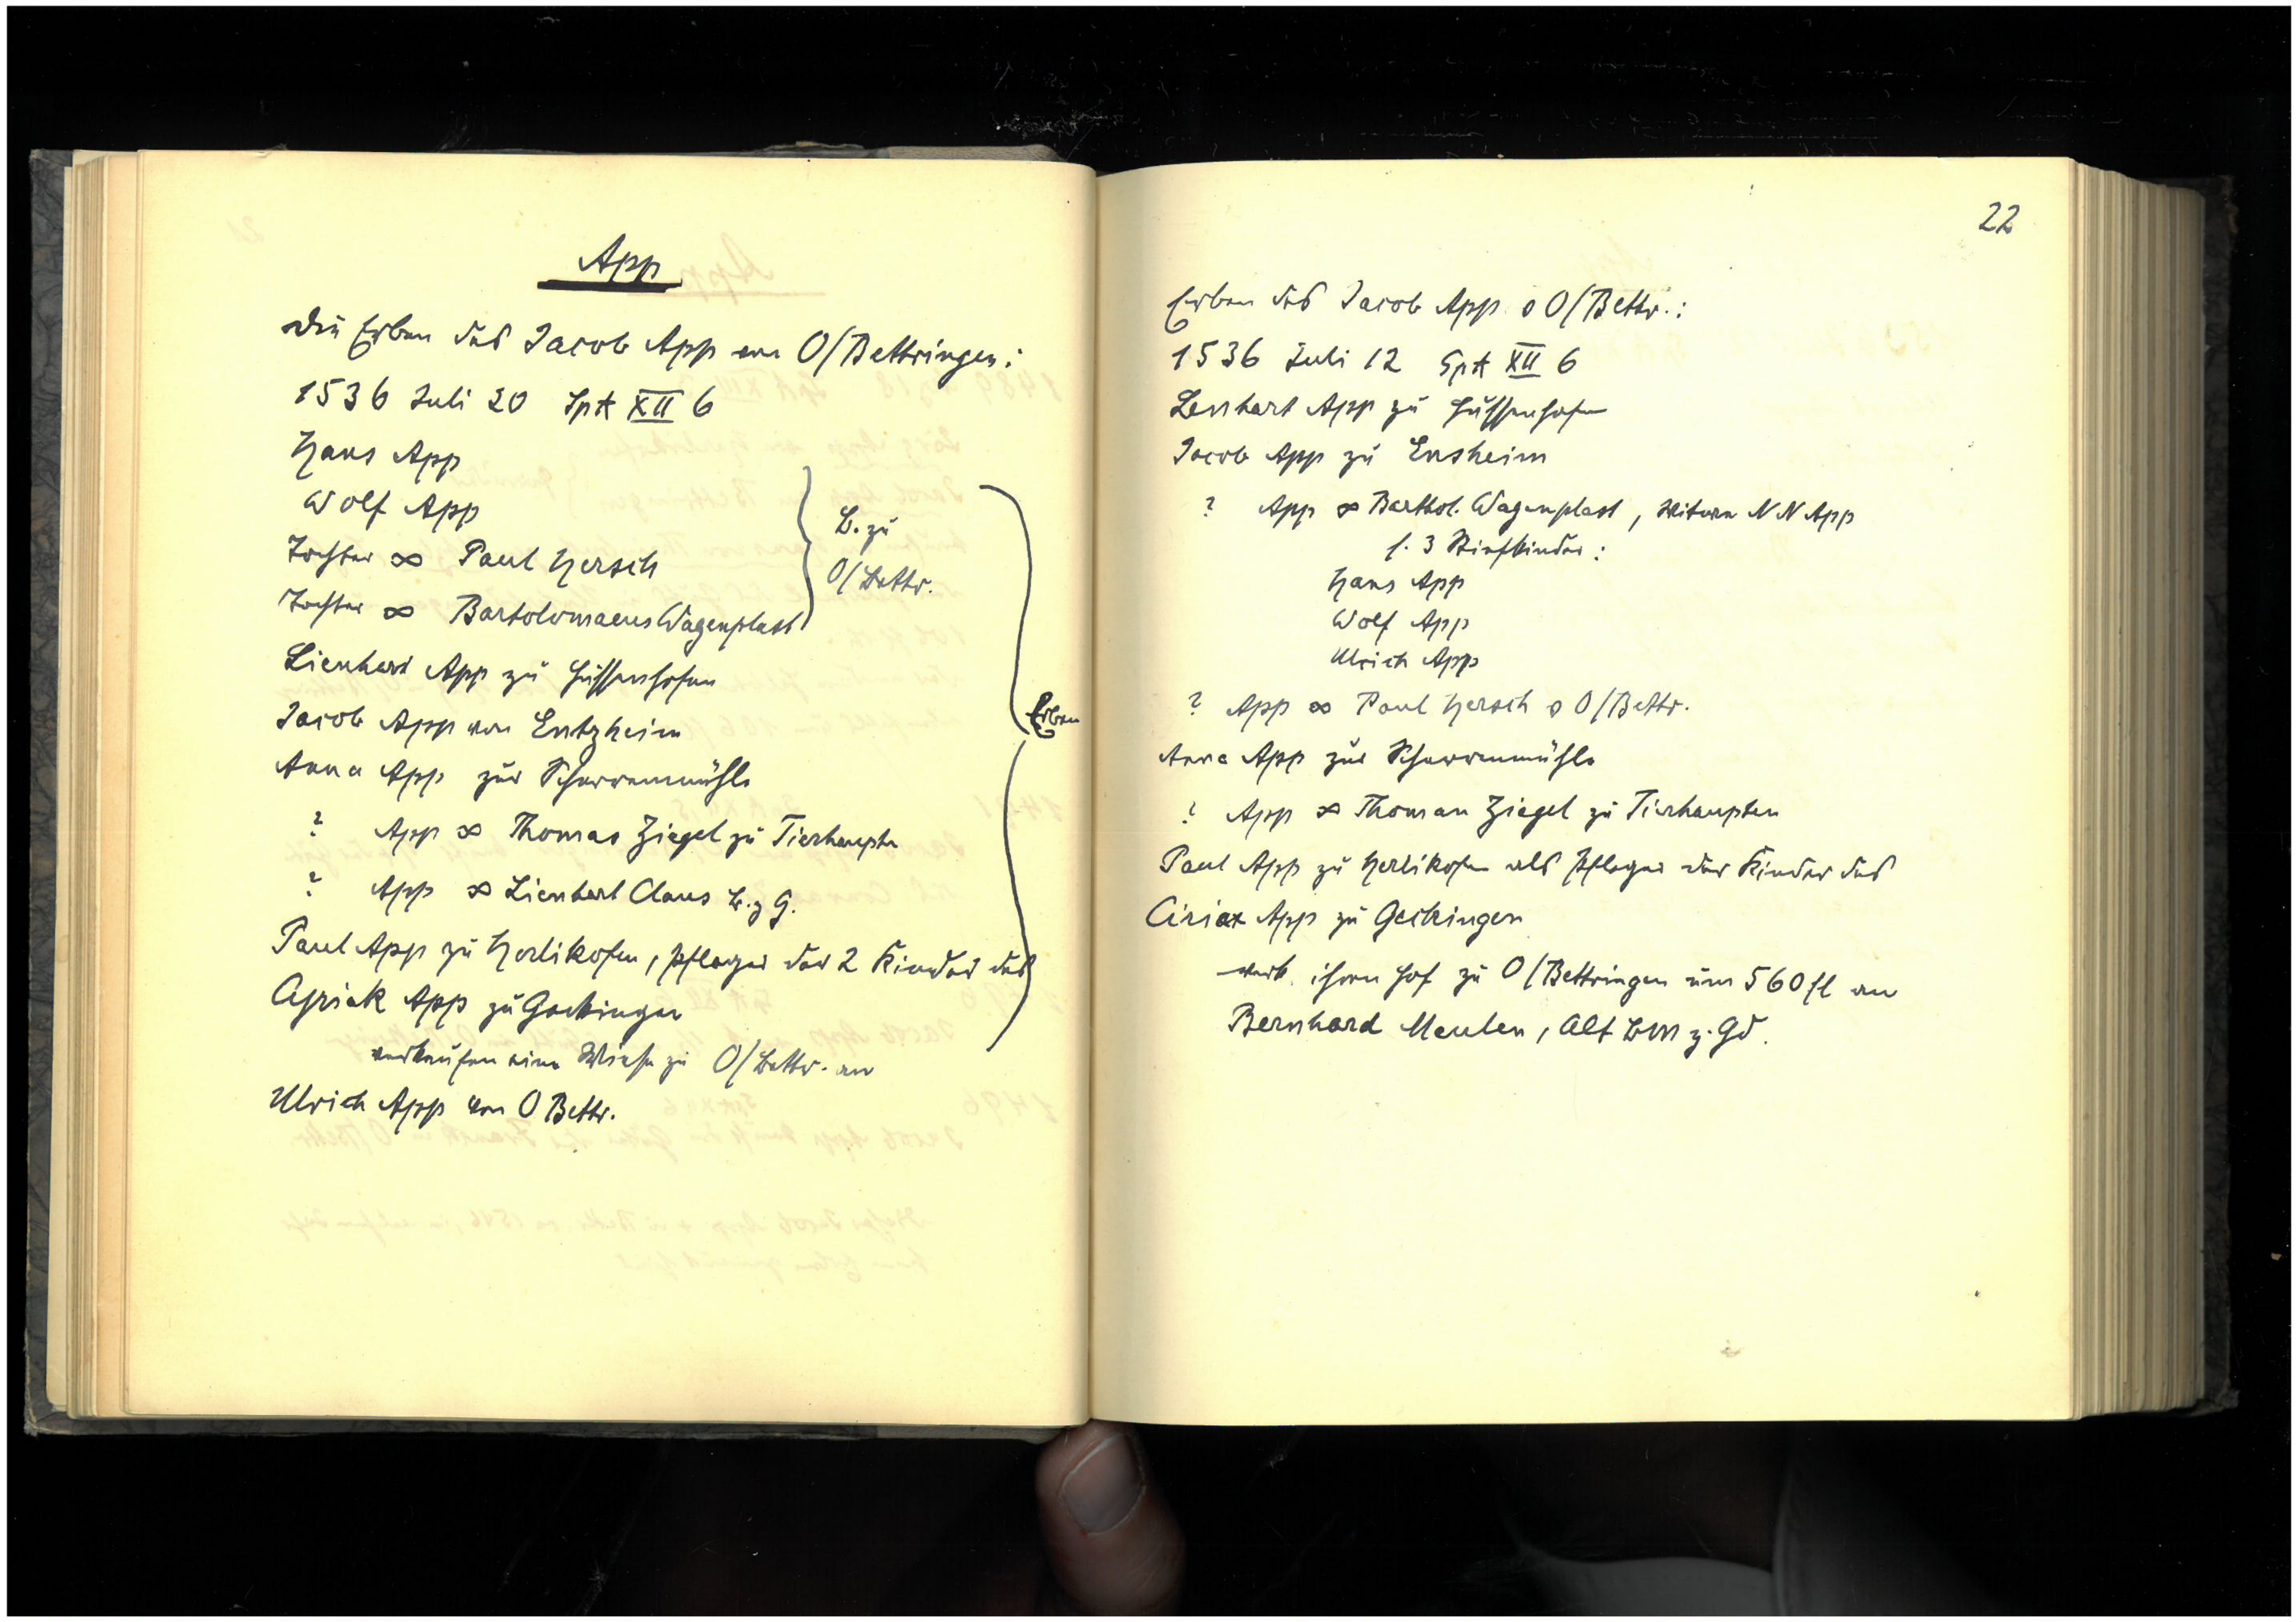 App
Die Erben des Jacob App von O/Bettringen:
1536 Juli 20 SpA XII 6
Hans App
Wolf App
Tochter ∞ Paul Hersch
Tochter ∞ Bartolomaeus Wagenplast
B. zu
O/Bettr.
Lienhard App zu Hussenhofen
Jacob App von Entzheim
Anna App zur Scharrenmühle
? App ∞ Thomas Ziegel zu Tierhaupte
? App ∞ Lienhart Claus B. z G.
Paul App zu Herlikofen, Pfleger der 2 Kinder des
Cyriak App zu Göckingen
verkaufen eine Wiese zu O/Bettr. an
Ulrich App von O Bettr.
Erben
22
Erben des Jacob App v O/Bettr.:
1536 Juli 12 SpA XII 6
Lenhart App zu Hussenhofen
Jacob App zu Ensheim
? App ∞ Barthol. Wagenplast, Witwe NN App
s. 3 Stiefkinder:
Hans App
Wolf App
Ulrich App
? App ∞ Paul Hersch v O/Bettr.
Anna App zur Scharrenmühle
? App ∞ Thoman Ziegel zu Tierhaupten
Paul App zu Herlikofen als Pfleger der Kinder des
Ciriax App zu Geckingen
verk. ihren Hof zu O/Bettringen um 560 fl an
Bernhard Meulen, Alt BM z. Gd.